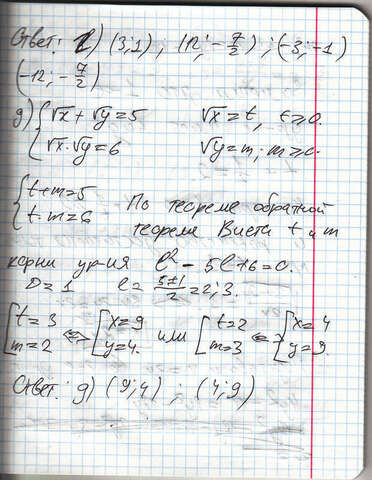 Ответ: г) (3;1) ; (12; -7/2) ; (-3; -1)
(-12; -7/2)
д) {√x + √y = 5   √x = t, t ≥ 0.
{√x · √y = 6   √y = m; m ≥ 0.
{t + m = 5
{t · m = 6   По теореме обратной
теореме Виета t и m
корни ур-ия l² - 5l + 6 = 0.
D = 1   l = (5±1)/2 = 2; 3.
[t = 3   [x = 9   или   [t = 2   [x = 4
[m = 2   <=>   [y = 4.   [m = 3   <=>   [y = 9.
Ответ: д) (9;4) ; (4;9)